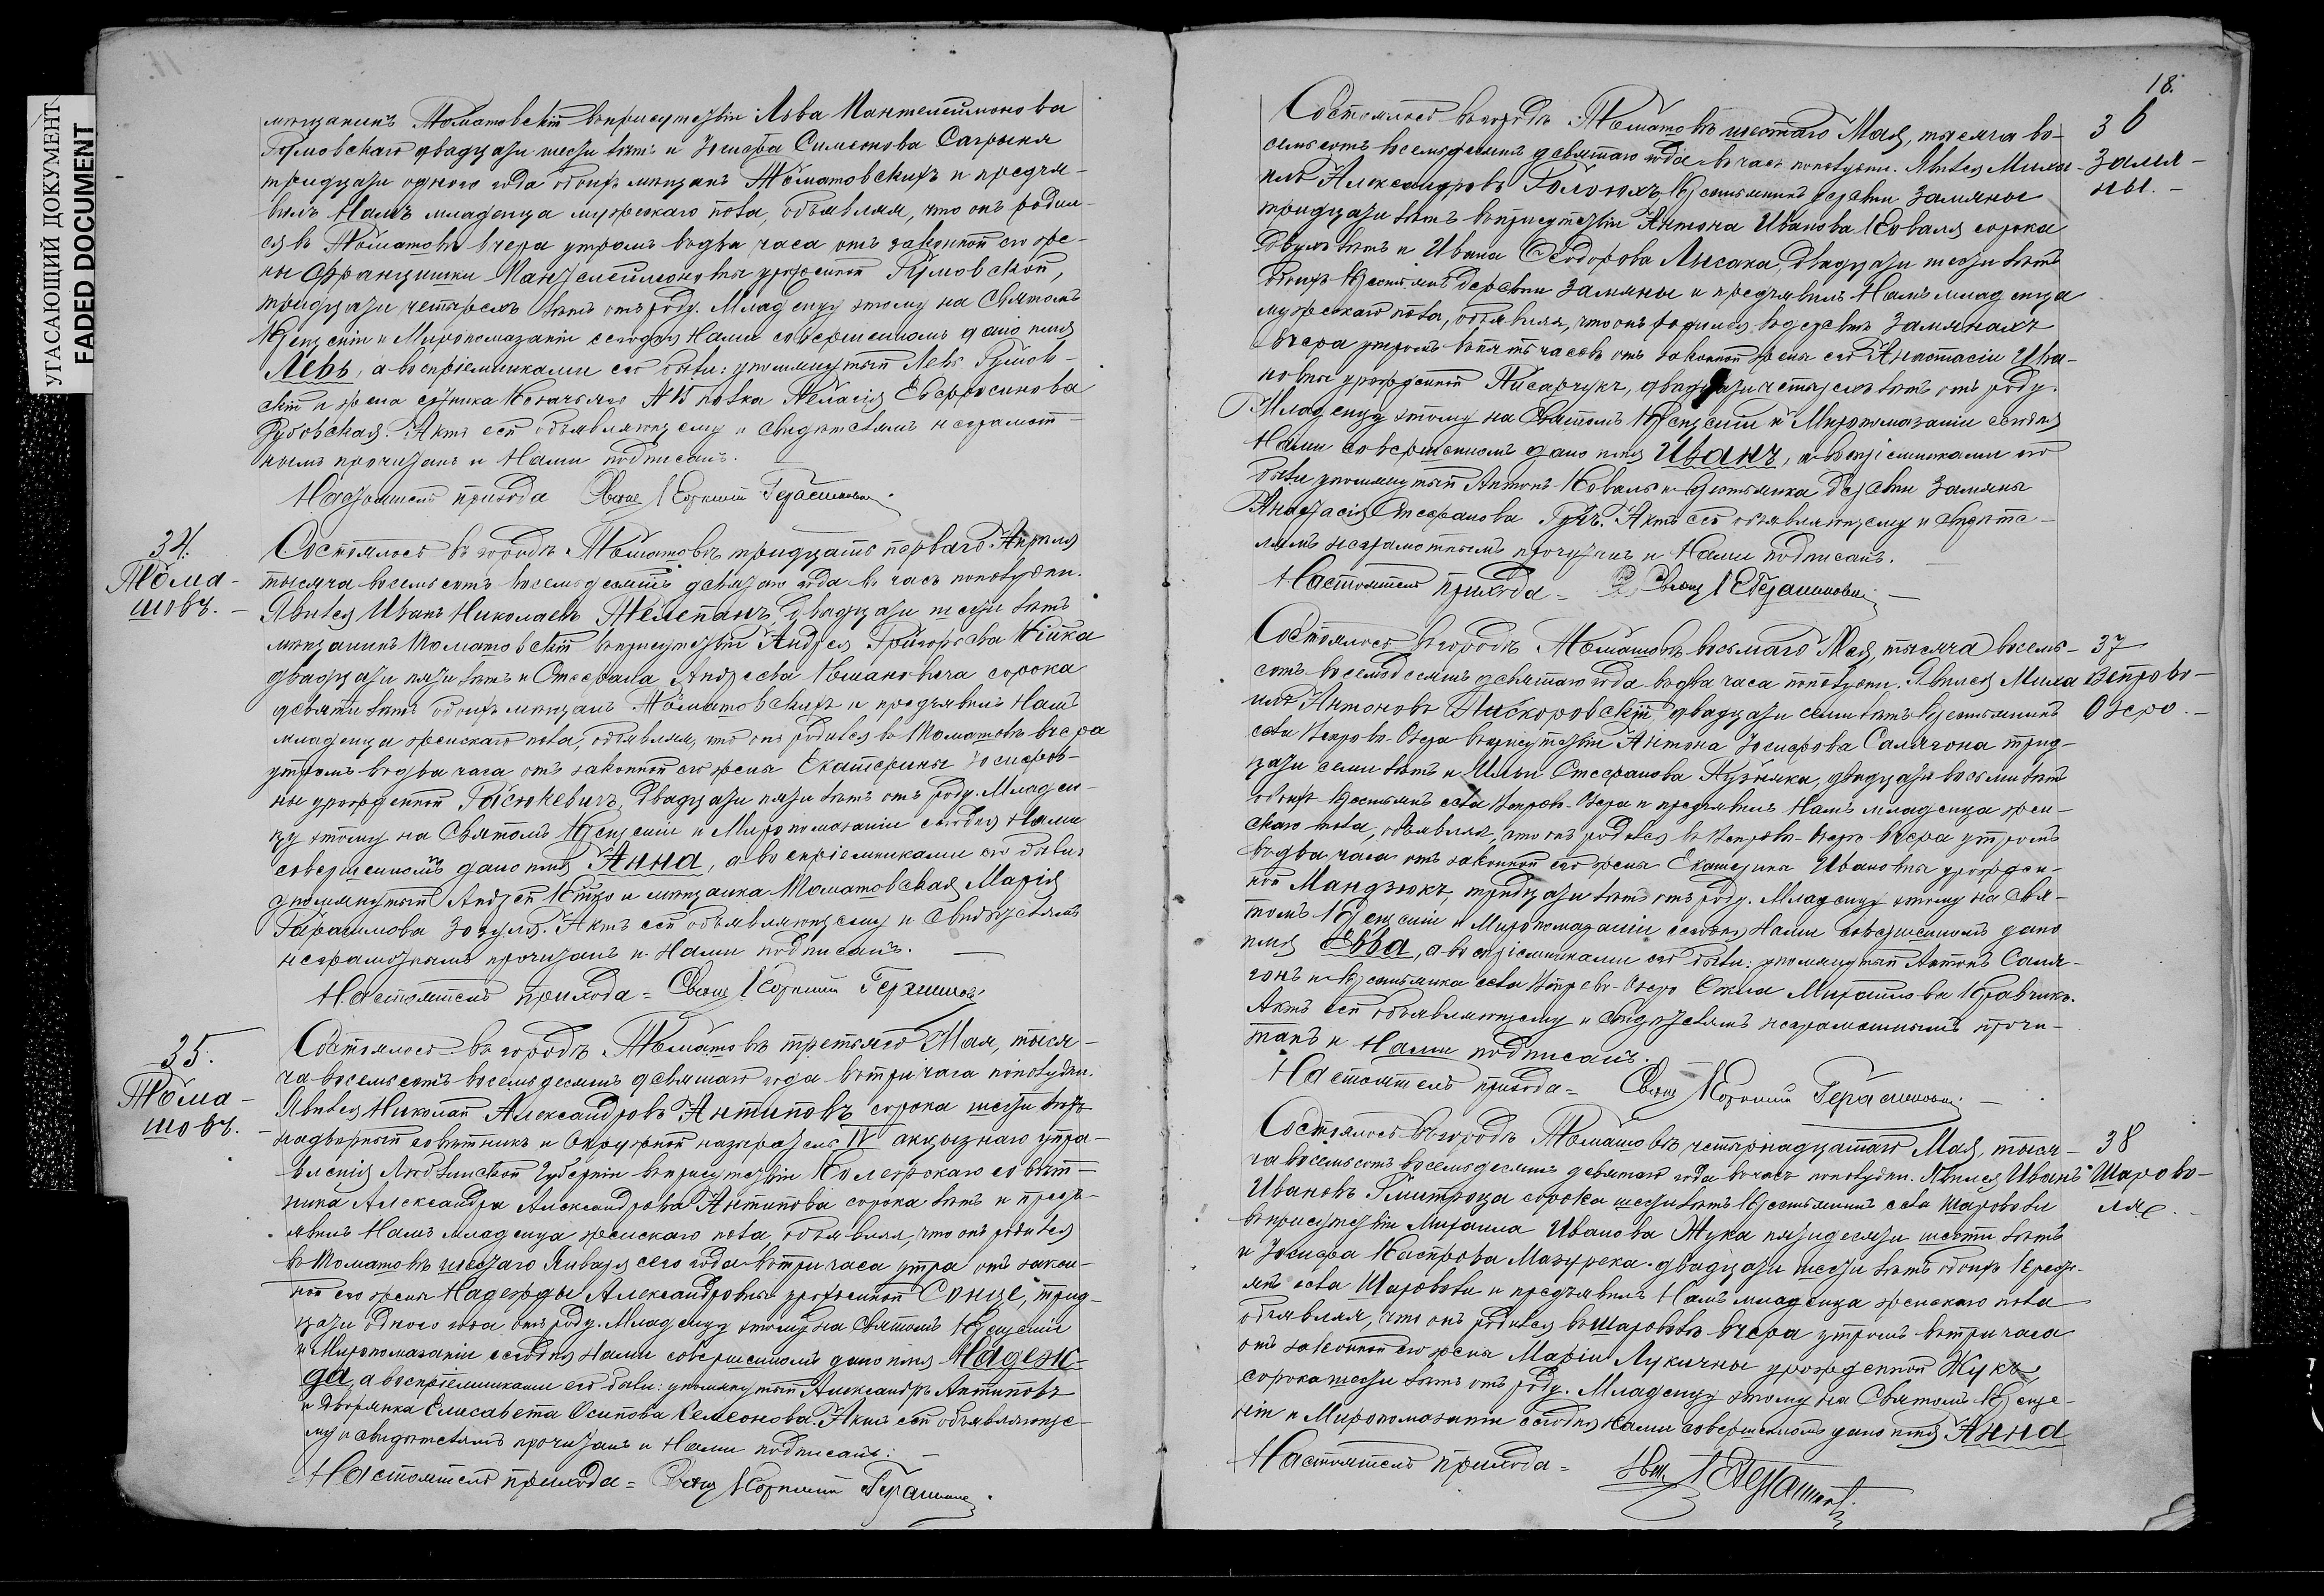 УГАСАЮЩИЙ ДОКУМЕНТ
FADED DOCUMENT
мѣщанинъ Томашовскій въ присутствіи Льва Пантелеймонова
Гумовскаго двадцати шести лѣтъ и Іосифа Симеонова Сагрыня
тридцати одного года обоихъ мѣщанъ Томашовскихъ и предъя-
вилъ Намъ младенца мужскаго пола, объявляя, что онъ родил-
ся въ Томашовѣ вчера утромъ въ два часа отъ законной его же-
ны Францишки Пантелеймоновны урожденной Гумовской,
тридцати четырехъ лѣтъ отъ роду. Младенцу этому на Святомъ
Крещеніи и Миропомазаніи сегодня Нами совершенномъ дано имя
Левъ, а воспріемниками его были: упомянутый Левъ Гумов-
скій и жена сотника Козачьяго № 15 полка Пелагія Евфросинова
Рубовская. Актъ сей объявляющему и свидѣтелямъ неграмот-
нымъ прочитанъ и Нами подписанъ.
Настоятель прихода Свящ Корнилій Герасимови
34.
Тома-
шовъ.
Состоялось въ городѣ Томашовѣ тридцать перваго Апрѣля
тысяча восемьсотъ восемьдесятъ девятаго года въ часъ пополудни.
Явился Иванъ Николаевъ Пелепанъ, двадцати шести лѣтъ
мѣщанинъ Томашовскій въ присутствіи Андрея Григорьева Кійка
двадцати пяти лѣтъ и Стефана Андреева Кошановича сорока
девяти лѣтъ обоихъ мѣщанъ Томашовскихъ и предъявилъ Намъ
младенца женскаго пола, объявляя, что онъ родился въ Томашовѣ вчера
утромъ въ два часа отъ законной его жены Екатерины Іосифов-
ны урожденной Гасюкевичъ, двадцати пяти лѣтъ отъ роду. Младен-
цу этому на Святомъ Крещеніи и Миропомазаніи сегодня Нами
совершенномъ дано имя Анна, а воспріемниками его были:
упомянутый Андрей Кійко и мѣщанка Томашовская Марія
Гарасимова Зозуля. Актъ сей объявляющему и свидѣтелямъ
неграмотнымъ прочитанъ и Нами подписанъ.
Настоятель прихода = Свящ Корнилій Герасимов
35.
Тома-
шовъ.
Состоялось въ городѣ Томашовѣ третьяго Мая, тыся-
ча восемьсотъ восемьдесятъ девятаго года въ три часа пополудни.
Явился Николай Александровъ Антиповъ сорока шести лѣтъ
надворный совѣтникъ и Окружной надзиратель IV акцизнаго упра-
вленія Люблинской Губерніи въ присутствіи Колежскаго совѣт-
ника Александра Александрова Антипова сорока лѣтъ и предъ-
явилъ Намъ младенца женскаго пола, объявляя, что онъ родился
въ Томашовѣ шестаго Января сего года въ три часа утра отъ закон-
ной его жены Надежды Александровны урожденной Сонце, трид-
цати одного года отъ роду. Младенцу этому на Святомъ Крещеніи
и Миропомазаніи сегодня Нами совершенномъ дано имя Надеж-
да, а воспріемниками его были: упомянутый Александръ Антиповъ
и дворянка Елисавета Осипова Семеонова. Актъ сей объявляюще-
му и свидѣтелямъ прочитанъ и Нами подписанъ:
Настоятель прихода = Свящ Корнилій Герасимов
18.
Состоялось въ городѣ Томашовѣ шестаго Мая, тысяча во-
семьсотъ восемьдесятъ девятаго года въ часъ пополудни. Явился Миха-
илъ Александровъ Голоюхъ, Крестьянинъ деревни Замяны
тридцати лѣтъ въ присутствіи Антона Иванова Коваля сорока
двухъ лѣтъ и Ивана Ѳеодорова Лысака, двадцати шести лѣтъ
обоихъ Крестьянъ деревни Замяны и предъявилъ Намъ младенца
мужскаго пола, объявляя, что онъ родился въ деревнѣ Замянахъ
вчера утромъ въ пять часовъ отъ законной жены его Анастасіи Ива-
новны урожденной Писарчукъ, двадцати четырехъ лѣтъ отъ роду.
Младенцу этому на Святомъ Крещеніи и Миропомазаніи сегодня
Нами совершенномъ дано имя Иванъ, а воспріемниками его
были упомянутый Антонъ Коваль и крестьянка деревни Замяны
Анастасія Стефанова Гучъ. Актъ сей объявляющему и свидѣте-
лямъ неграмотнымъ прочитанъ и Нами подписанъ.
Настоятель прихода = Свящ К Герасимови
36
Замя-
ны.
Состоялось въ городѣ Томашовѣ восьмаго Мая, тысяча восемь-
сотъ восемьдесятъ девятаго года въ два часа пополудни. Явился Миха
илъ Антоновъ Нискоровскій, двадцати семи лѣтъ Крестьянинъ
села Вепрово-Озера въ присутствіи Антона Іосифова Салягона трид-
цати семи лѣтъ и Ильи Стефанова Пузьняка, двадцати восьми лѣтъ
обоихъ Крестьянъ села Вепрово-Озера и предъявилъ Намъ младенца жен-
скаго пола, объявляя, что онъ родился въ Вепрово-Озерѣ вчера утромъ
въ два часа отъ законной его жены Екатерина Ивановны урожден-
ной Мандзюкъ, тридцати лѣтъ отъ роду. Младенцу этому на Свя-
томъ Крещеніи и Миропомазаніи сегодня Нами совершенномъ дано
имя Евва, а воспріемниками его были: упомянутый Антонъ Саля-
гонъ и Крестьянка села Вепрово-Озеро Ѳекла Михайлова Кравчикъ.
Актъ сей объявляющему и свидѣтелямъ неграмотнымъ прочи-
танъ и Нами подписанъ.
Настоятель прихода = Свящ Корнилій Герасимови
37
Вепрово-
Озеро.
Состоялось въ городѣ Томашовѣ четырнадцатаго Мая, тыся-
ча восемьсотъ восемьдесятъ девятаго года въ часъ пополудни. Явился Иванъ
Ивановъ Гмитроца сорока шести лѣтъ Крестьянинъ села Шароволи
въ присутствіи Михаила Иванова Жука пятидесяти шести лѣтъ
и Іосифа Каспрова Мазурека двадцати шести лѣтъ обоихъ Крестъ-
янъ села Шароволи и предъявилъ Намъ младенца женскаго пола
объявляя, что онъ родился въ Шароволѣ вчера утромъ въ три часа
отъ законной его жены Маріи Лукичны урожденной Жукъ,
сорока шести лѣтъ отъ роду. Младенцу этому на Святомъ Креще-
ніи и Миропомазаніи сегодня Нами совершенномъ дано имя Анна
Настоятель прихода =
38
Шарово-
ля.